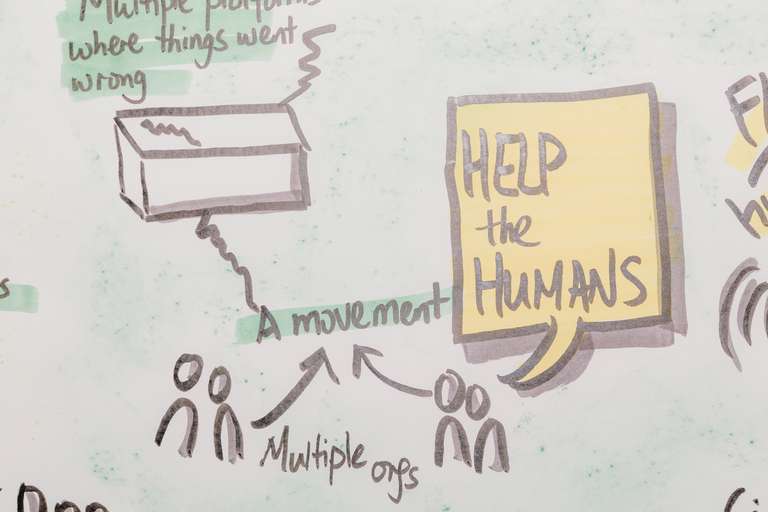 Multiple platforms
where things went
wrong
HELP
the
HUMANS
A movement
Multiple orgs